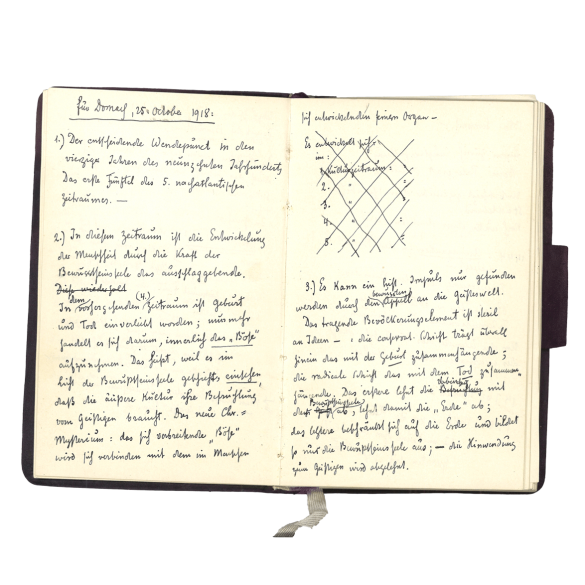 Für Dornach, 25. October 1918:
1.) Der entscheidende Wendepunkt in den
vierziger Jahren des neunzehnten Jahrhunderts
Das erste Fünftel des 5. nachatlantischen
Zeitraumes. —
2.) In diesem Zeitraum ist die Entwickelung
der Menschheit durch die Kraft der
Bewusstseinsseele das ausschlaggebende.
Diese wiederholt
In dem vorhergehenden (4.) Zeitraum ist Geburt
und Tod einverleibt worden; nunmehr
handelt es sich darum, innerlich das „Böse"
aufzunehmen. Das heißt, weil es im
Licht der Bewußtseinsseele geschieht: einsehen,
daß die äußere Kultur ohne Befruchtung
vom Geistigen braucht. Das neue Chr.=
Mysterium: das sich verbreitende „Böse"
wird sich verbinden mit dem im Menschen
sich entwickelnden feinern Organ —
Es entwickelt sich:
im:
1. Kulturzeitraum:
2. " :
3. " :
4. " :
5. " :
3.) Es kann ein hist. Impuls nur gefunden
werden durch den bewussten Appell an die Geisteswelt.
Das tragende Bevölkerungselement ist steril
an Ideen — : die conservat. Schicht trägt überall
hinein das mit der Geburt zusammenhängende;
die radicale Schicht das mit dem Tod zusammen=
hängende. Das erstere lehnt die Befruchtung mit
der Bewußtseinsseele ab; lehnt damit die „Erde" ab;
das letztere beschränkt sich auf die Erde und bildet
so nur die Bewußtseinsseele aus; — die Hinwendung
zum Geistigen wird abgelehnt.